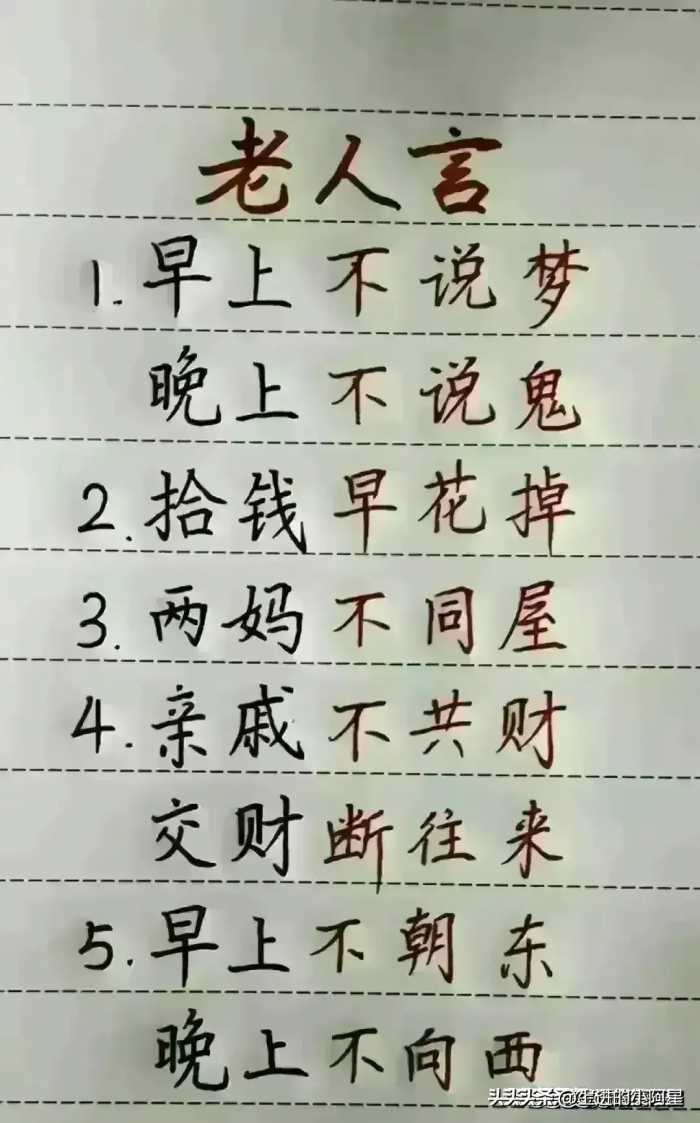 老人言
1. 早上不说梦
晚上不说鬼
2. 拾钱早花掉
3. 两妈不同屋
4. 亲戚不共财
交财断往来
5. 早上不朝东
晚上不向西